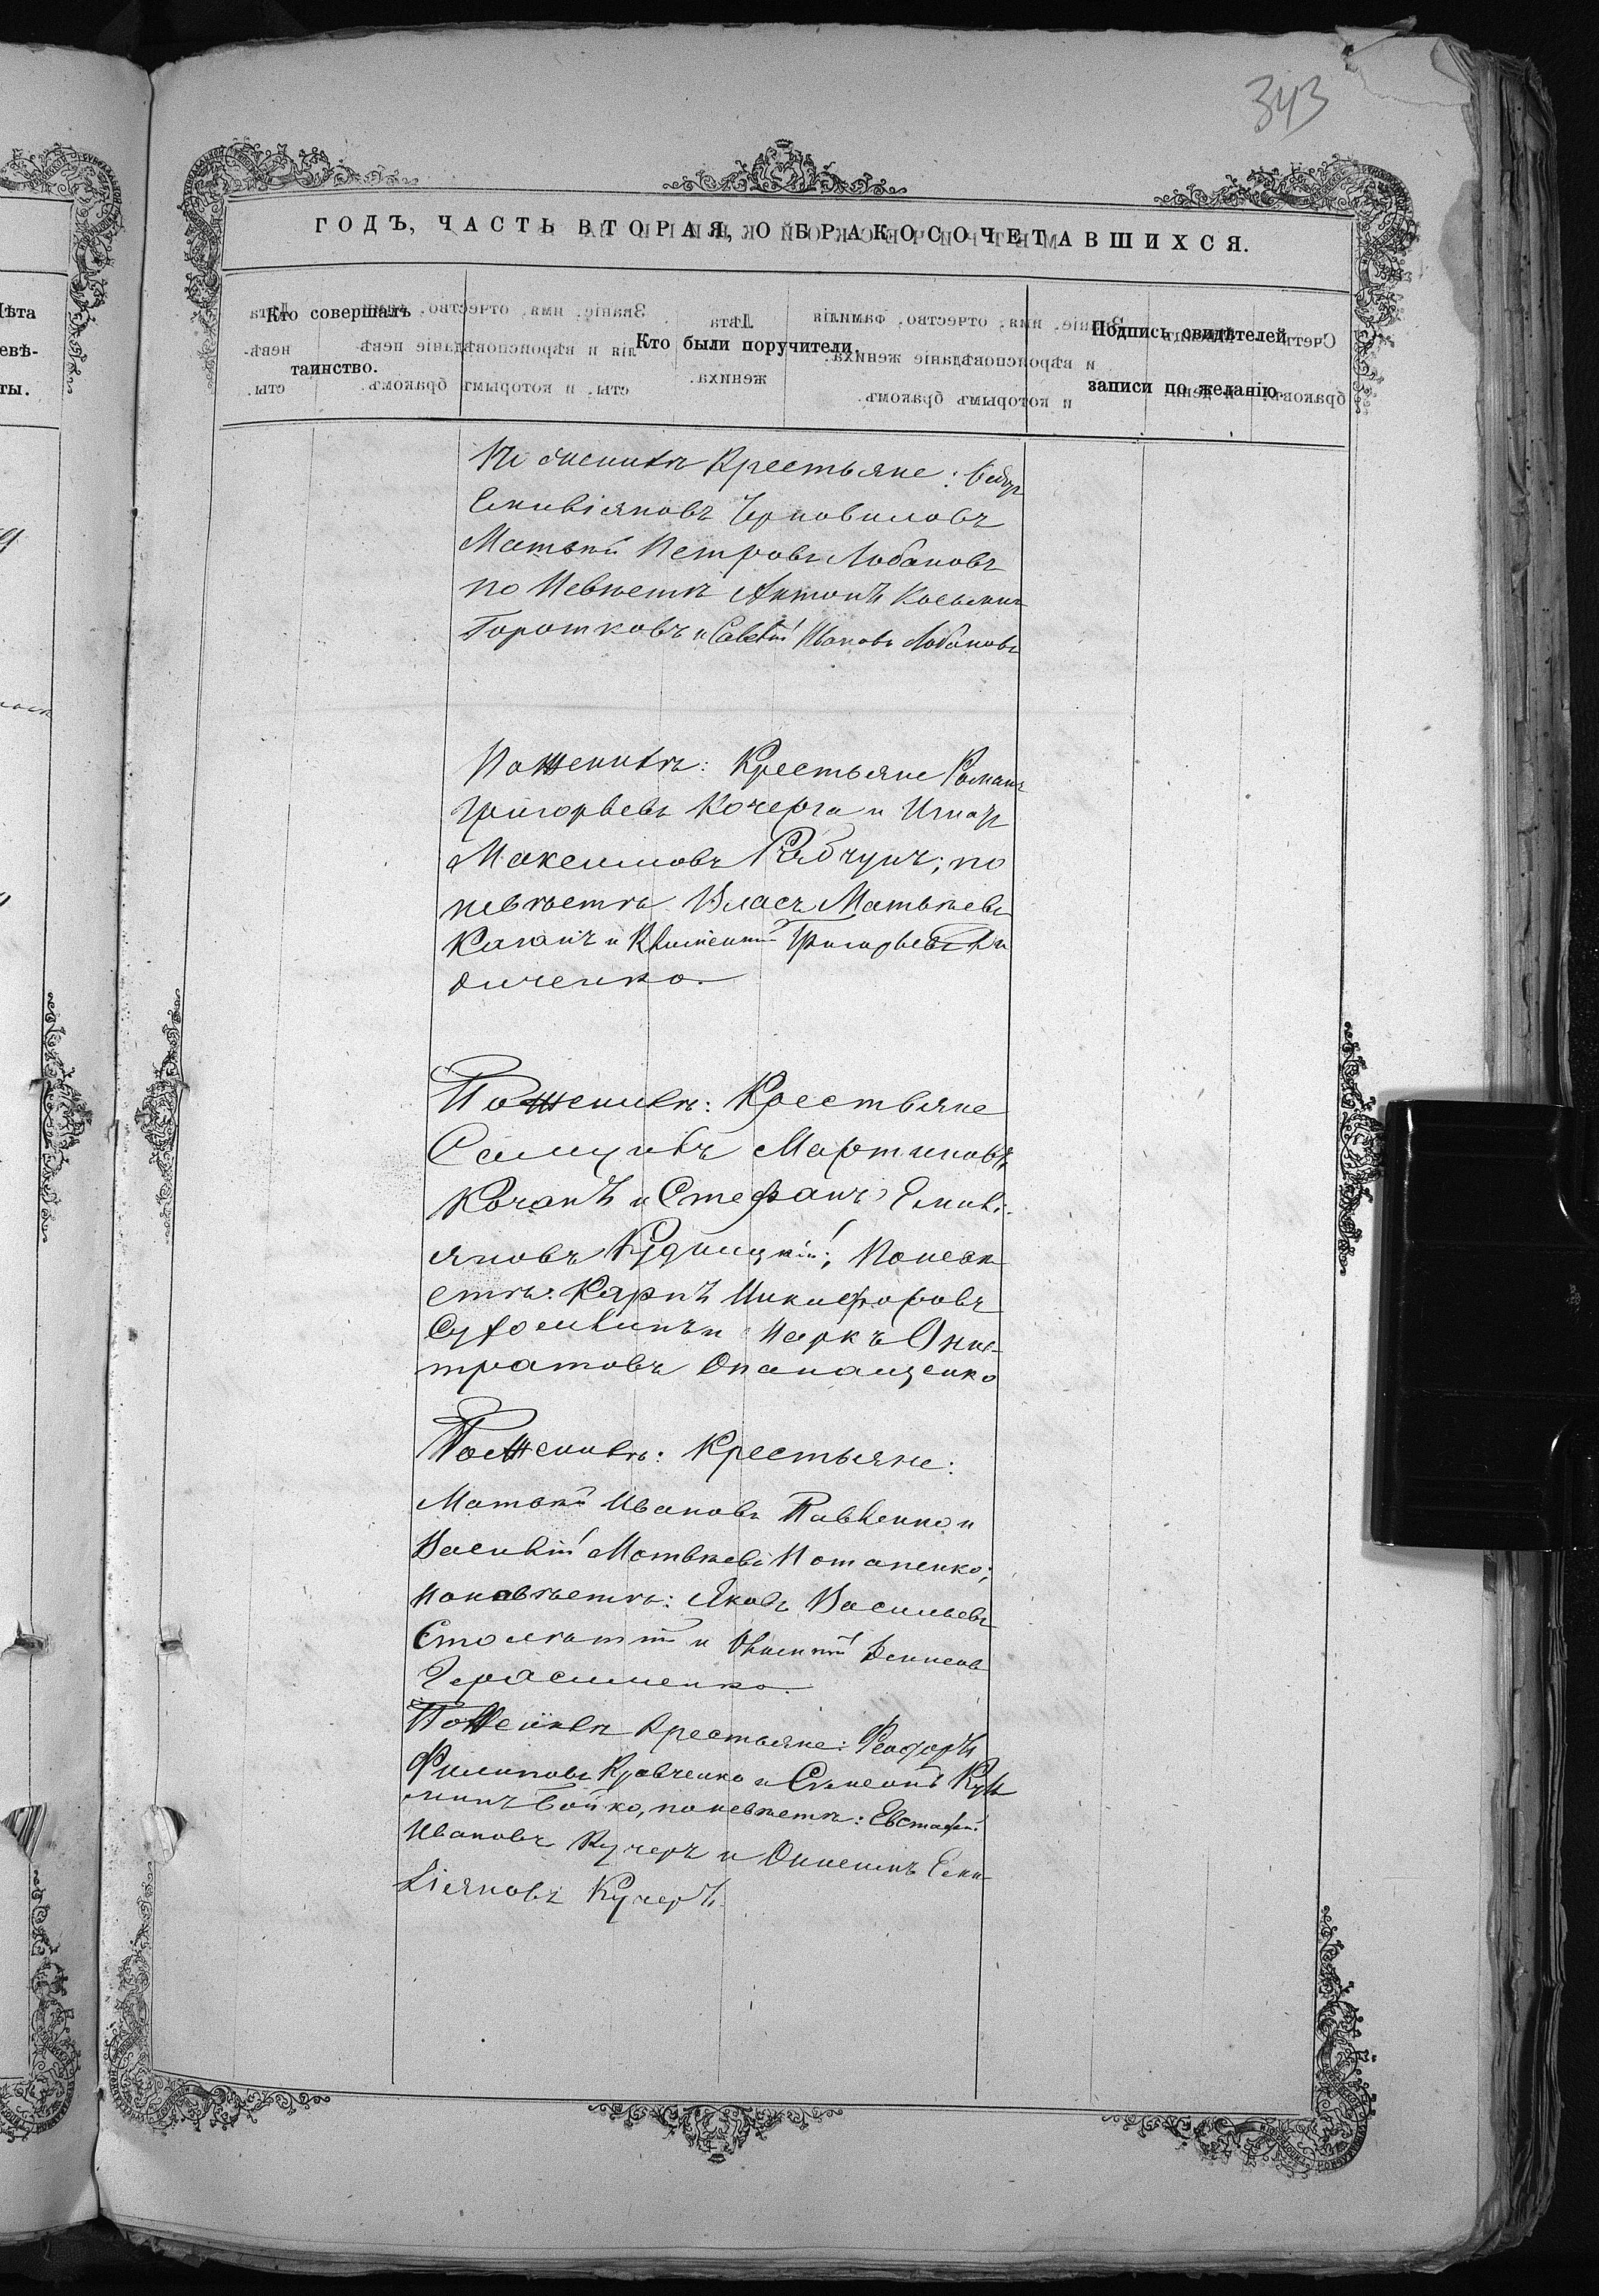 343
ГОДЪ, ЧАСТЬ ВТОРАЯ, О БРАКОСОЧЕТАВШИХСЯ.
Кто совершалъ
таинство.
Кто были поручители.
Подпись свидѣтелей
записи по желанію.
По женихѣ Крестьяне:
Матвѣй Петровъ Лобановъ
по Невѣстѣ Антонъ
Горошковъ и Иванов Лобановъ
По Женихѣ: Крестьяне Романъ
Григорьевъ Кочерга и Игнат
Максимовъ Рябчунъ; по
невѣстѣ Власъ Матвѣевъ
Каганъ и Климентий Григорьевъ Ди
диченко.
По Женихѣ: Крестьяне
Самуилъ Мартиновъ
Кочанъ и Стефанъ Емил
іяновъ Кудницкій; По невѣ
стѣ: Карпъ Никифоровъ
и Маркъ
тратовъ Опанащенко
По Женихѣ: Крестьяне:
Матвѣй Ивановъ Павленко и
Василій Матвѣевъ Потапенко;
по невѣстѣ: Яковъ Васильевъ
и Денисовъ
Герасименко.
По Женихѣ Крестьяне: Феодоръ
Филиповъ Кравченко и Симеонъ Кузь
минъ Бойко, по невѣстѣ: Евстафий
Ивановъ Кучеръ и Онисимъ Еми-
ліяновъ Кучеръ.